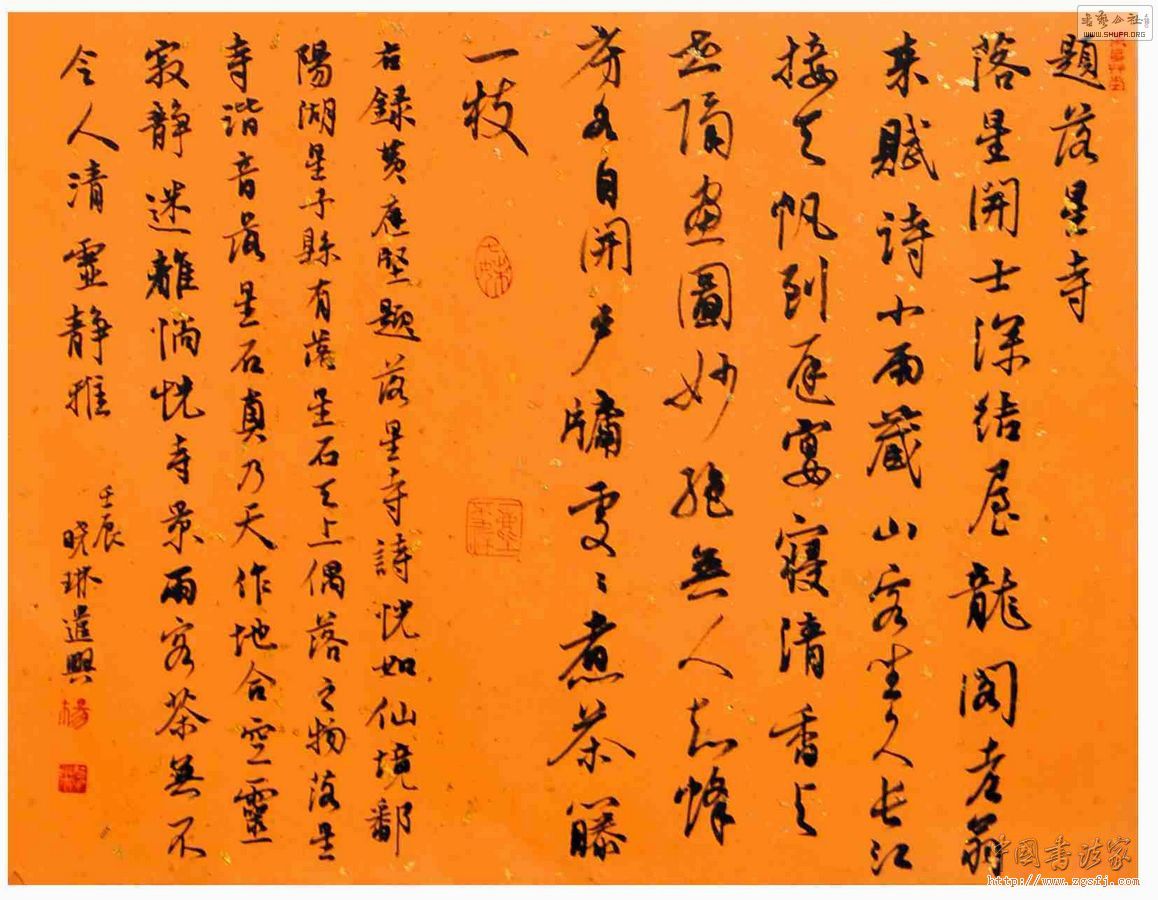 題落星寺
落星開士深結屋龍閣老翁
来賦詩小雨藏山客坐久長江
接天帆到遲宴寢清香与
世隔畫圖妙絕無人知蜂
房各自開戶牖處〻煮茶藤
一枝
右録黄庭堅題落星寺詩恍如仙境鄱
陽湖星子縣有落星石天上偶落之物落星
寺諧音落星石真乃天作地合空靈
寂静迷離惝恍寺景雨客茶無不
令人清靈静雅
壬辰
晓琳遣興
楊
书艺公社
www.SHUFA.ORG
中国书法家
http://www.zgsfj.com